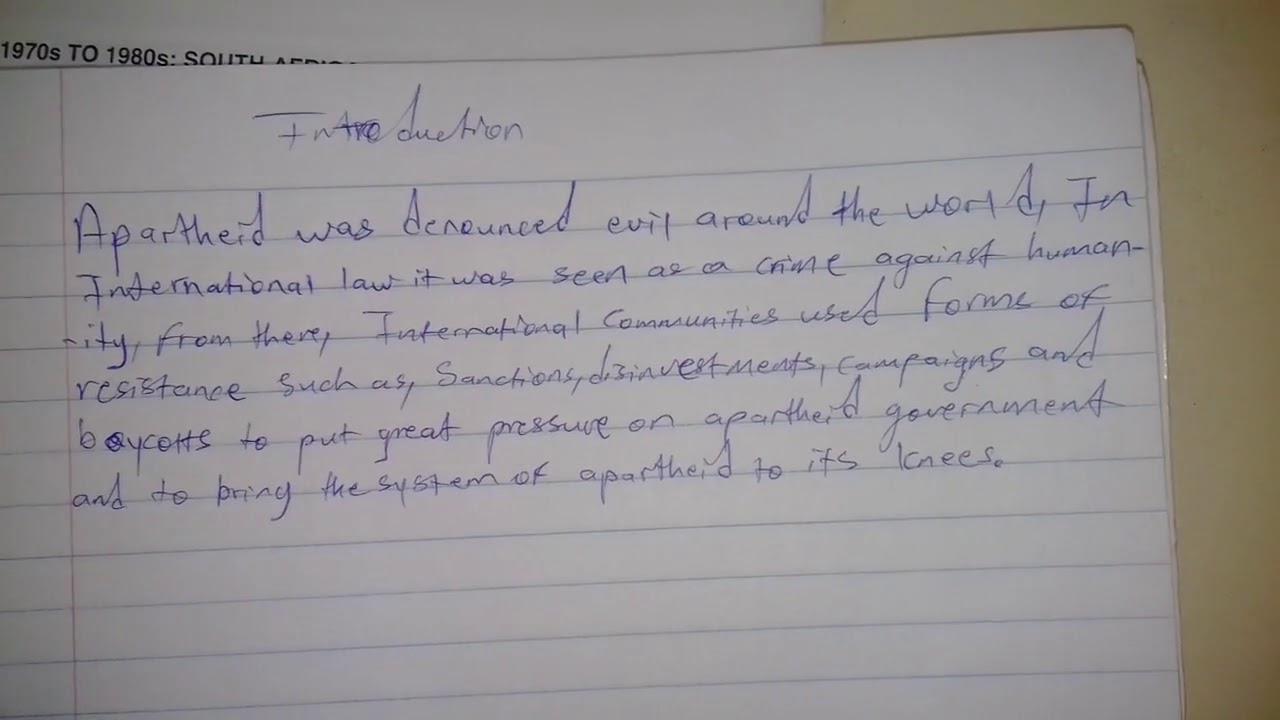 1970s TO 1980s: SOUTH AFRIC
Introduction
Apartheid was denounced evil around the world, In
International law it was seen as a crime against human-
-ity, from there, International Communities used forms of
resistance such as, Sanctions, disinvestments, campaigns and
boycotts to put great pressure on apartheid government
and to bring the system of apartheid to its knees.